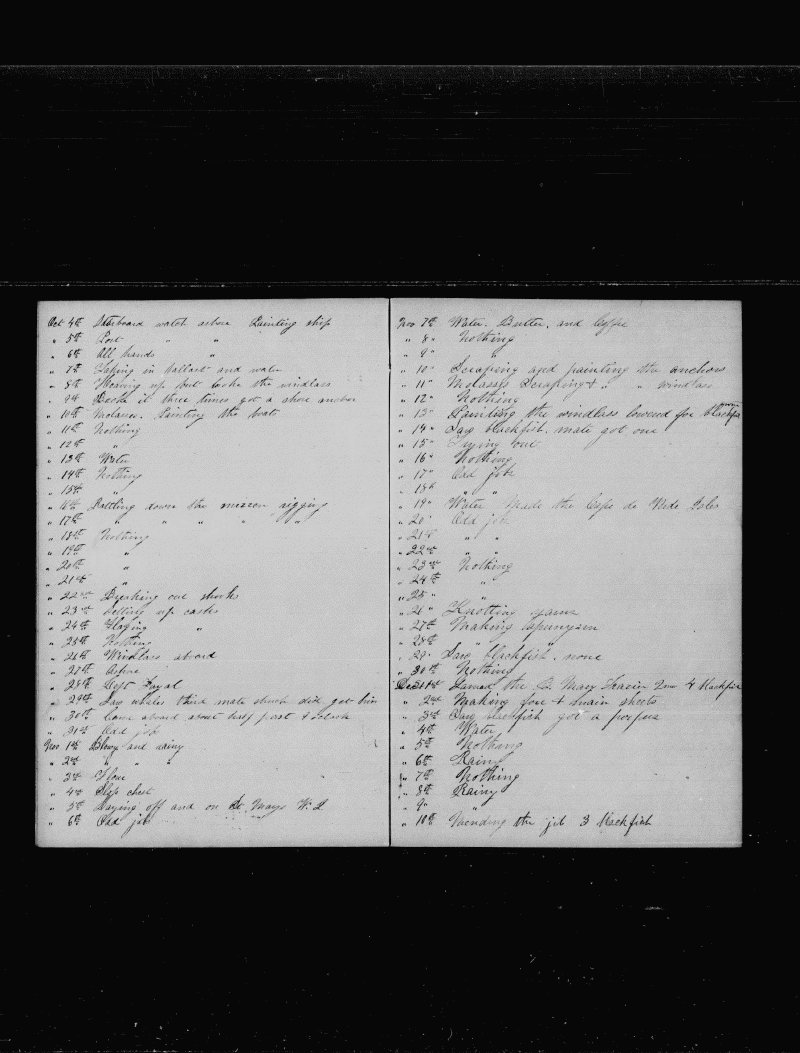 Oct 4th Starboard watch ashore Painting ship
" 5th Port " "
" 6th All hands "
" 7th Taking in ballast and water
" 8th Heaving up but broke the windlass
" 9th Broke it three times got a shore anchor
" 10th Molasses. Painting the boats
" 11th Nothing
" 12th "
" 13th Water
" 14th Nothing
" 15th "
" 16th Rattling down the mizzen rigging
" 17th " " " " "
" 18th Nothing
" 19th "
" 20th "
" 21st "
" 22nd Breaking out shooks
" 23rd Setting up casks
" 24th Flaging "
" 25th Nothing
" 26th Windlass aboard
" 27th Ashore
" 28th Left Fayal
" 29th Saw whales third mate struck did get him
" 30th Came aboard about half past 4 oclock
" 31st Odd job
Nov 1st Blowy and rainy
" 2nd " " "
" 3rd Flour
" 4th Slop chest
" 5th Laying off and on St. Marys W. I.
" 6th Odd job
Nov 7th Water. Butter. and Coffee
" 8 " Nothing
" 9 " "
" 10 " Scraping and painting the anchors
" 11 " Molasses Scraping & " " windlass
" 12 " Nothing
" 13 " Painting the windlass lowered for blackfish
" 14 " Saw blackfish. mate got one
" 15 " Trying out
" 16 " Nothing
" 17 " Odd job
" 18th " "
" 19 " Water Made the Cape de Verde Isles
" 20 " Odd job
" 21st " "
" 22nd " "
" 23rd Nothing
" 24th "
" 25 " "
" 26 " Knotting yarns
" 27th Making spunyarn
" 28th " "
" 29 " Saw blackfish. none
" 30th Nothing
Dec 1st the B. Mary Frazier 4 blackfish
" 2nd Making fore & main sheets
" 3rd Saw blackfish got a porpus
" 4th Water
" 5th Nothing
" 6th Rainy
" 7th Nothing
" 8th Rainy
" 9 " "
" 10th Mending the jib 3 blackfish